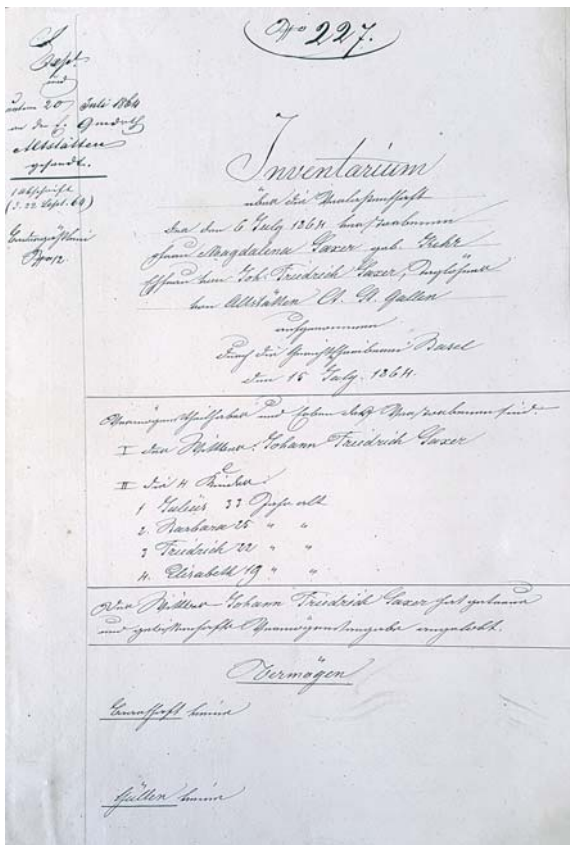 No 227.
und
unterm 20 Juli 1864
an die E. Gmdrth
Altstätten
gesandt.
1 Abschrift
(d. 22 Sept. 69)
Inventarium
über die Verlassenschaft
der den 6 July 1864 verstorbenen
Frau Magdalena Saxer geb. Kehr
Ehefrau von Joh. Friedrich Saxer,
von Altstätten Ct. St. Gallen
aufgenommen
durch die Gerichtschreiberei Basel
den 15 July. 1864.
Vermögenstheilhaber und Erben der Verstorbenen sind:
I der Wittwer: Johann Friedrich Saxer
II die 4 Kinder:
1 Julius, 33 Jahr alt
2. Barbara 25 " "
3 Friedrich 22 " "
4. Elisabeth 19 " "
Der Wittwer Johann Friedrich Saxer hat getreue
und gewissenhafte Vermögensangabe angelobt.
Vermögen
Baarschaft keine
keine